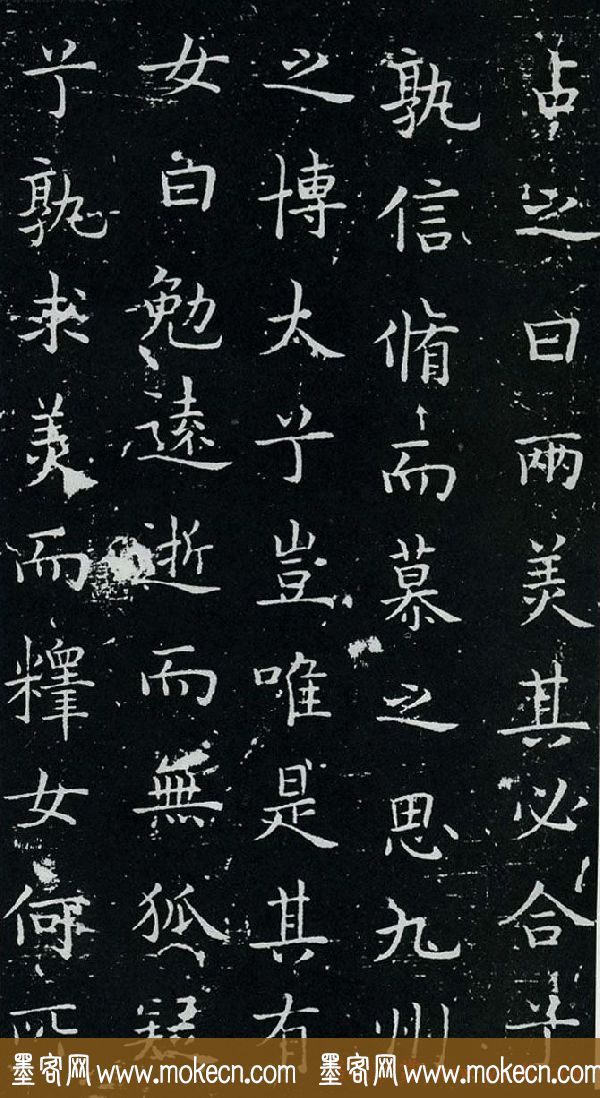 占之曰兩美其必合兮
孰信脩而慕之思九州
之博太兮豈唯是其有
女曰勉遠逝而無狐疑
兮孰求美而釋女何所
墨客网 www.mokecn.com 墨客网 www.mokecn.com